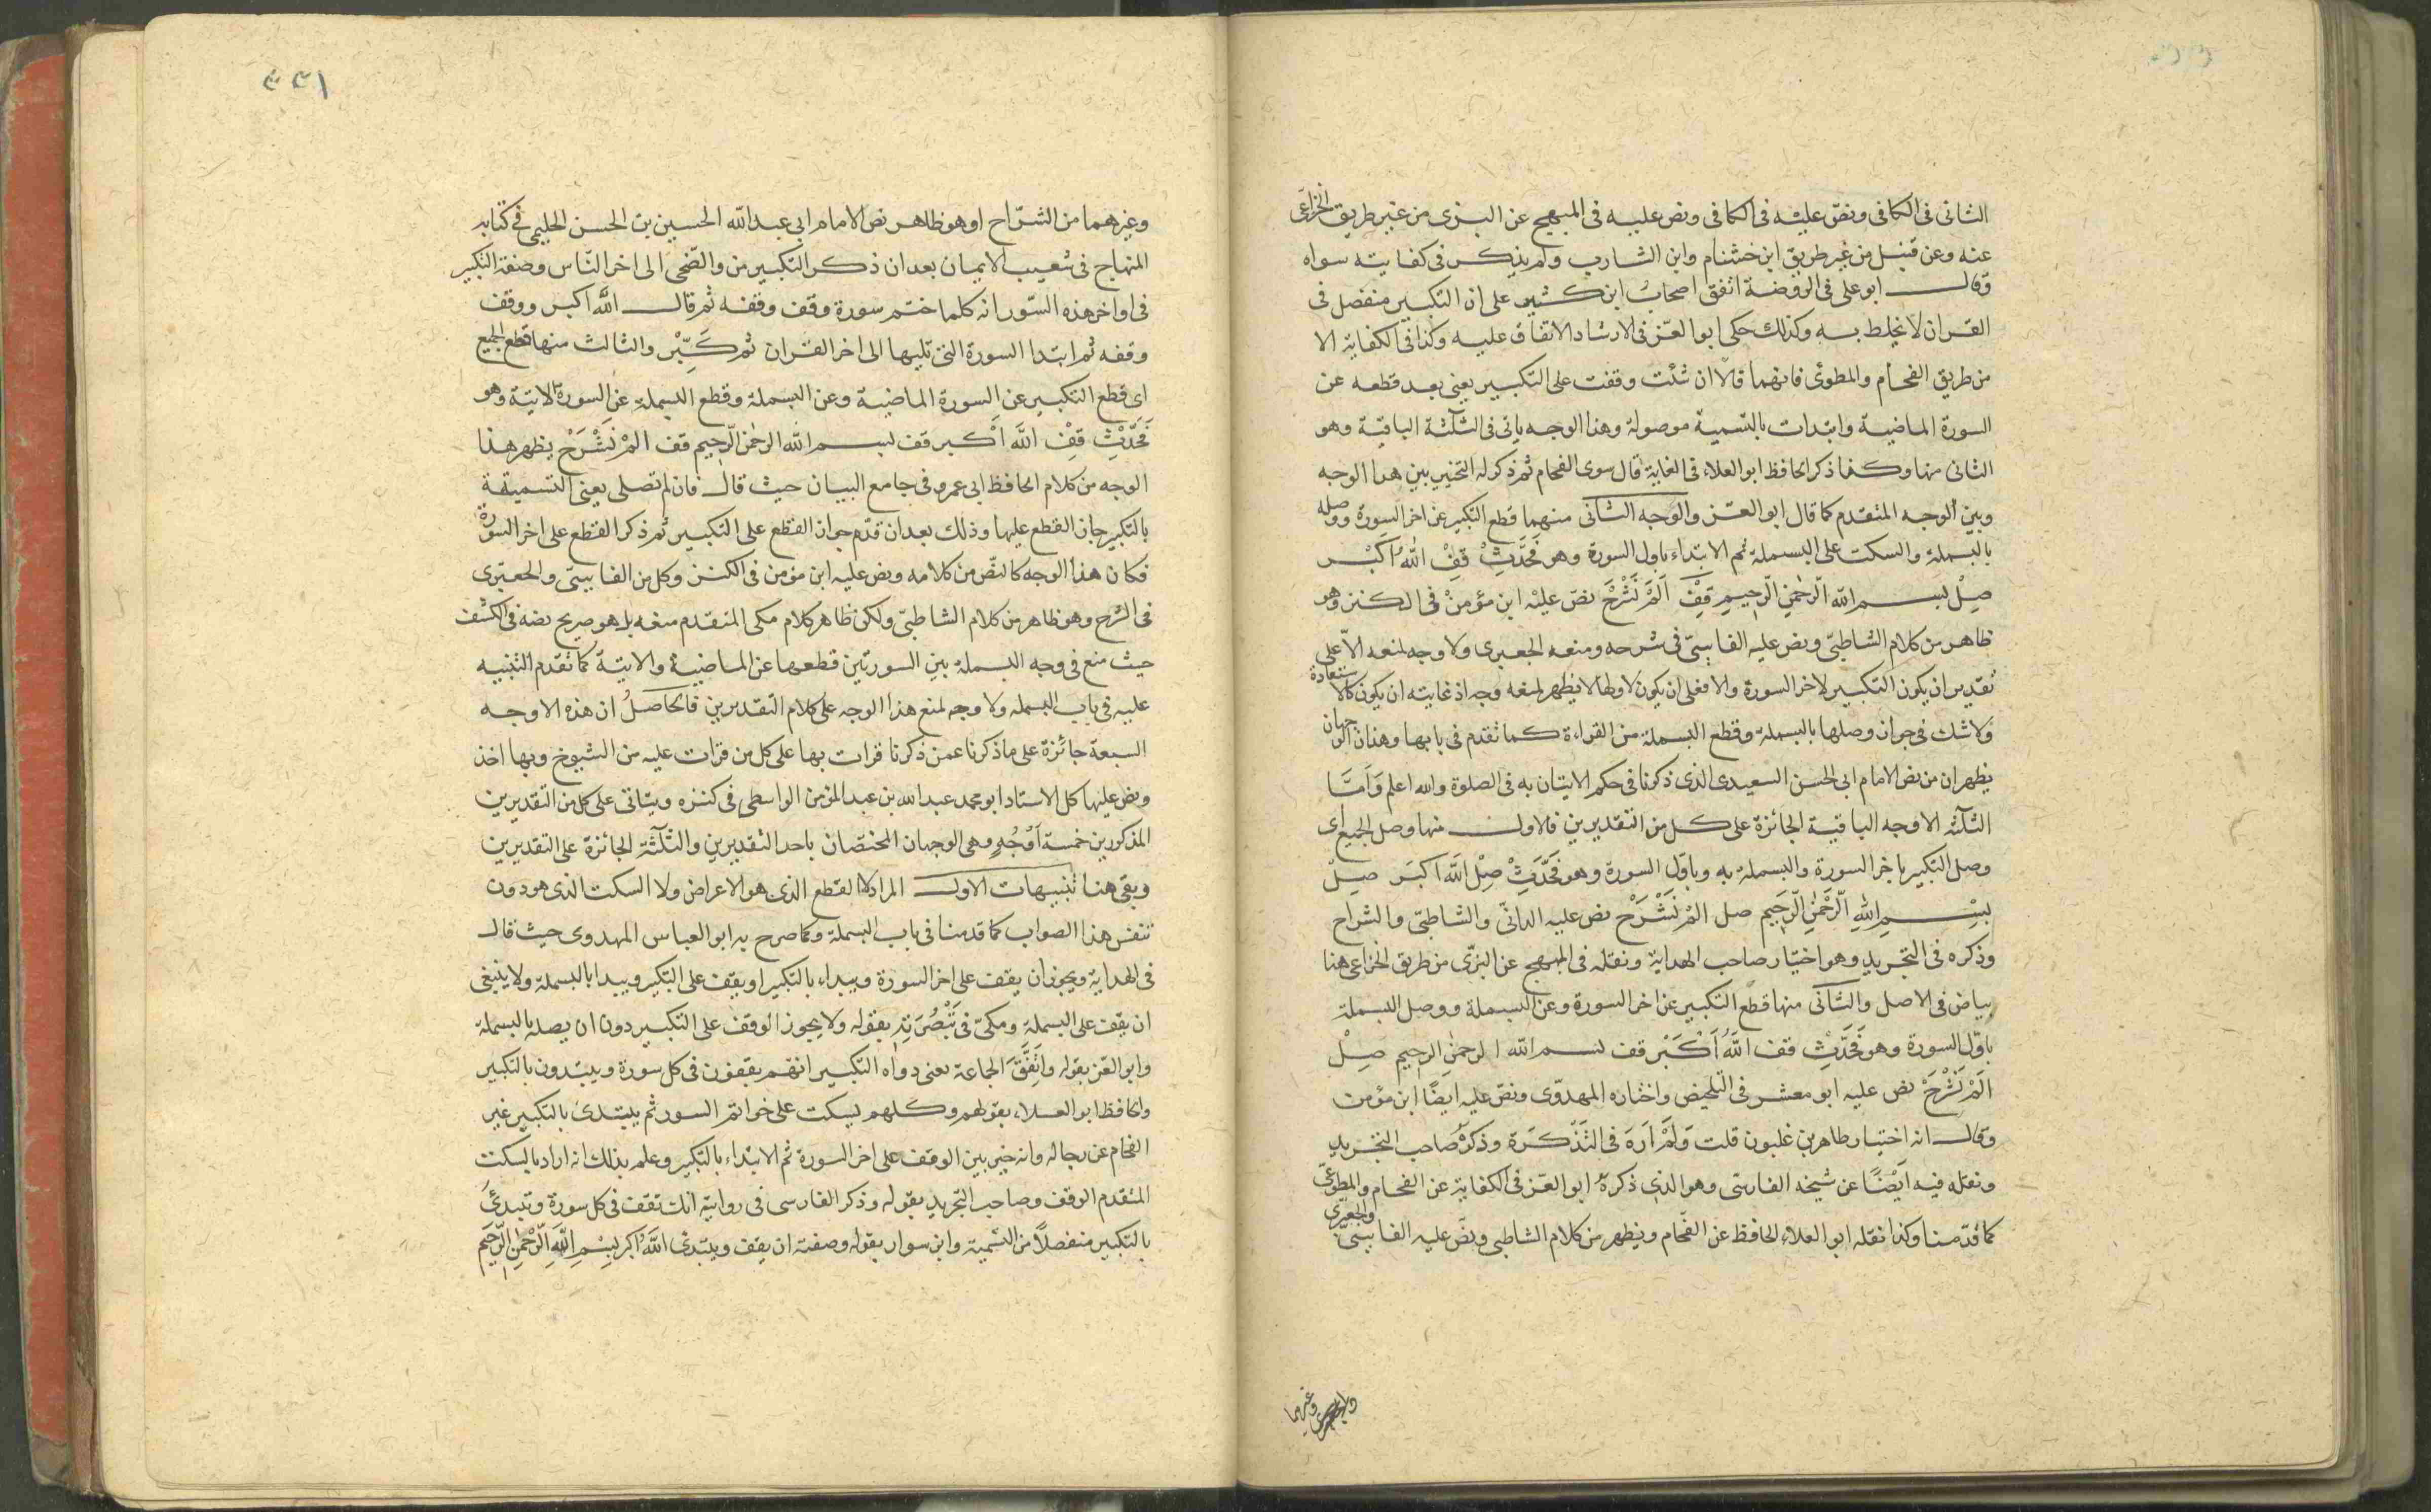 الثانى فى الكافى ونصّ عليْه فى الكافى ونص عليه فى المبهج عن البزى من غير طريق الخزاعى
عنه وعن قنبل من غير طريق ابن خشنام وابن الشارب ولم يذكر فى كفايته سواه
وقال ابو على فى الروضة اتفق اصحابُ ابن كثير على ان التكبير منفصل فى
القران لا يخلط به وكذلك حكى ابو العّز فى الارشاد الاتفاق عليه وكذا فى الكفاية الا
من طريق الفحام والمطوعى فانهما قالا ان شئت وقفت على التكبير يعنى بعد قطعه عن
السورة الماضية وابتدات بالتسمية موصولة وهذا الوجه ياتى فى الثلثة الباقية وهو
الثانى منها وكذا ذكر الحافظ ابو العلاء فى الغاية قال سوى الفحام ثم ذكر له التخيير بين هذا الوجه
وبين الوجه المتقدم كما قال ابو العّز والوجه الثانى منهما قطع التكبير عن اخر السورة ووصله
بالبسملة والسكت على البسملة ثم الابتداء باول السورة وهو فَحَدِّثْ قِفْ اللهُ اَكبْر
صِلْ بسم الله الرّحمٰن الرّحيم قِفْ اَلَمْ نَشْرَحْ نصّ عليْه ابن مؤمنْ فى الكنز وهو
ظاهر من كلام الشاطبّى ونص عليه الفاسىّ فى شرحه ومنعه الجعبرى ولا وجه لمنعه الاّ على
تقدير ان يكون التكبير لاخر السورة والا فعلى ان يكون لاولها لا يظهر لمنعه وجه اذ غايته ان يكون كالاستعاذة
ولا شك فى جواز وصلها بالبسملة وقطع البسملة من القراءة كما تقدم فى بابها وهذان الوجهان
يظهران من نص الامام ابى الحسن السعيدى الذى ذكرنا فى حكم الاتيان به فى الصلوة والله اعلم وَاَمَّا
الثلٰثه الاوجه الباقية الجائزة على كل من التقديرين فالاول منها وصل الجميع اى
وصل التكبير باخر السورة والبسملة به وباوّل السورة وهو فَحَدِّثْ صِلْ اللّه اكبَر صِلْ
بِسْمِ اللهِ الرَّحْمٰنِ الرَّحيم صل المْ نَشْرَحْ نص عليه الدانىّ والشاطبّى والشراح
وذكره فى التجريد وهو اختيار صاحب الهداية ونقله فى المبهج عن البزّى من طريق الخزاعى هنا
بياض فى الاصل والثانى منها قطع التكبير عن اخر السورة وعن البسملة ووصل البسملة
باوّل السورة وهو فَحَدِّثْ قف اللّهُ اَكْبَرْ قف بسم الله الرحمٰن الرحيم صِلْ
اَلَمْ نَشْرَحْ نص عليه ابو معشر فى التلخيص واختاره المهدوّى ونصّ عليه ايضًا ابن مؤمن
وقال انه اختيار طاهر بن غلبون قلت وَلَمْ اَرَهَ فى التَذْكَرة وذكرُه صاحب التجريد
ونقله فيه ايَضْاً عن شيخه الفارسّى وهو الذى ذكرهُ ابو العّز فى الكفاية عن الفحام والمطوعّى
كما قدّمنا وكذا نقله ابو العلاء الحافظ عن الفحّام ويظهر من كلام الشاطبى ونصَّ عليه الفاسىّ والجعبرّى
وغيرهما
وغيرهما من الشّراح اوهو ظاهر نص الامام ابى عبد اللّه الحسين بن الحسن الحليمى فى كتابه
المنهاج فى شعيب الايمان بعد ان ذكر التكبير من والضّحى الى اخر النّاس وصفة التكبير
فى اواخر هذه السّور انه كلما ختم سورة وقف وقفه ثم قال اللّه اكبر ووقف
وقفه ثم ابتدا السورة التى تليها الى اخر القران ثم كَبِّرْ والثالث منها قطع الجميع
اى قطع التكبير عن السورة الماضية وعن البسملة وقطع البسملة عن السورة الاتية وهو
فَحَدِّثْ قِفْ اللّه اَكْبر قف بسم اللّه الرحمٰن الرّحيم قف المْ نَشْرَحْ يظهر هذا
الوجه من كلام الحافظ ابى عمرو فى جامع البيان حيث قال فان لم تصلى يعنى التسمية
بالتكبير جاز القطع عليها وذلك بعد ان قدّم جواز القطع على التكبير ثم ذكر القطع على اخر السورة
فكان هذا الوجه كالنصّ من كلامه ونص عليه ابن مؤمن فى الكنز وكل من الفاسىّ والجعبّرى
فى الشرح وهو ظاهر من كلام الشاطبىّ ولكن ظاهر كلام مكى المتقدم منعه بل هو صريح نصه فى الكشف
حيث منع فى وجه البسملة بين السورتين قطعها عن الماضية والاتية كما تقدم التنبيه
عليه فى باب البسمله ولا وجه لمنع هذا الوجه على كلام التقديرين فالحاصلُ ان هذه الاوجه
السبعة جائزة على ما ذكرنا عمن ذكرنا قرات بها على كل من قرات عليه من الشيوخ وبها اخذ
ونص عليها كل الاستاد ابو محمد عبد الله بن عبد المؤمن الواسطى فى كنزه ويتاتى على كل من التقديرين
المذكورين خمسة اَوْجُهٍ وهى الوجهان المختصّان باحد التقديرين والثلٰثة الجائزة على التقديرين
وبقى هنا تنبيهات الاول المراد لا القطع الذى هو الاعراض ولا السكت الذى هو دون
تنفس هذا الصواب كما قدمنا فى باب البسملة وكما صرح به ابو العباس المهدوى حيث قال
فى الهداية ويجوز ان يقف على اخر السورة ويبداء بالتكبير او يقف على التكبير ويبدا بالبسملة ولا ينبغى
ان يقف على البسملة ومكىّ فى تَبْصُرَتِهِ بقوله ولا يجوز الوقف على التكبير دون ان يصله بالبسملة
وابو العّز بقوله واتِفّقَ الجماعة يعنى رواه التكبير انهم يقفون فى كل سورة ويبتدون بالتكبير
والحافظ ابو العلاء بقولهم وكلهم يسكت على خواتم السور ثم يبتدئ بالتكبير غير
الفحام عن رجاله وانه خيّر بين الوقف على اخر السورة ثم الابتداء بالتكبير وعلم بذلك انه اراد بالسكت
المتقدم الوقف وصاحب التجريد بقوله وذكر الفارسى فى روايته انك تقف فى كل سورة وتبتدئُ
بالتكبير منفصلاً من التسمية وابن سوار بقوله وصفته ان يقف ويبتدئ اللّهُ اكبر بِسْمِ اللّهِ الرّحْمٰنِ الرّحيَمِ